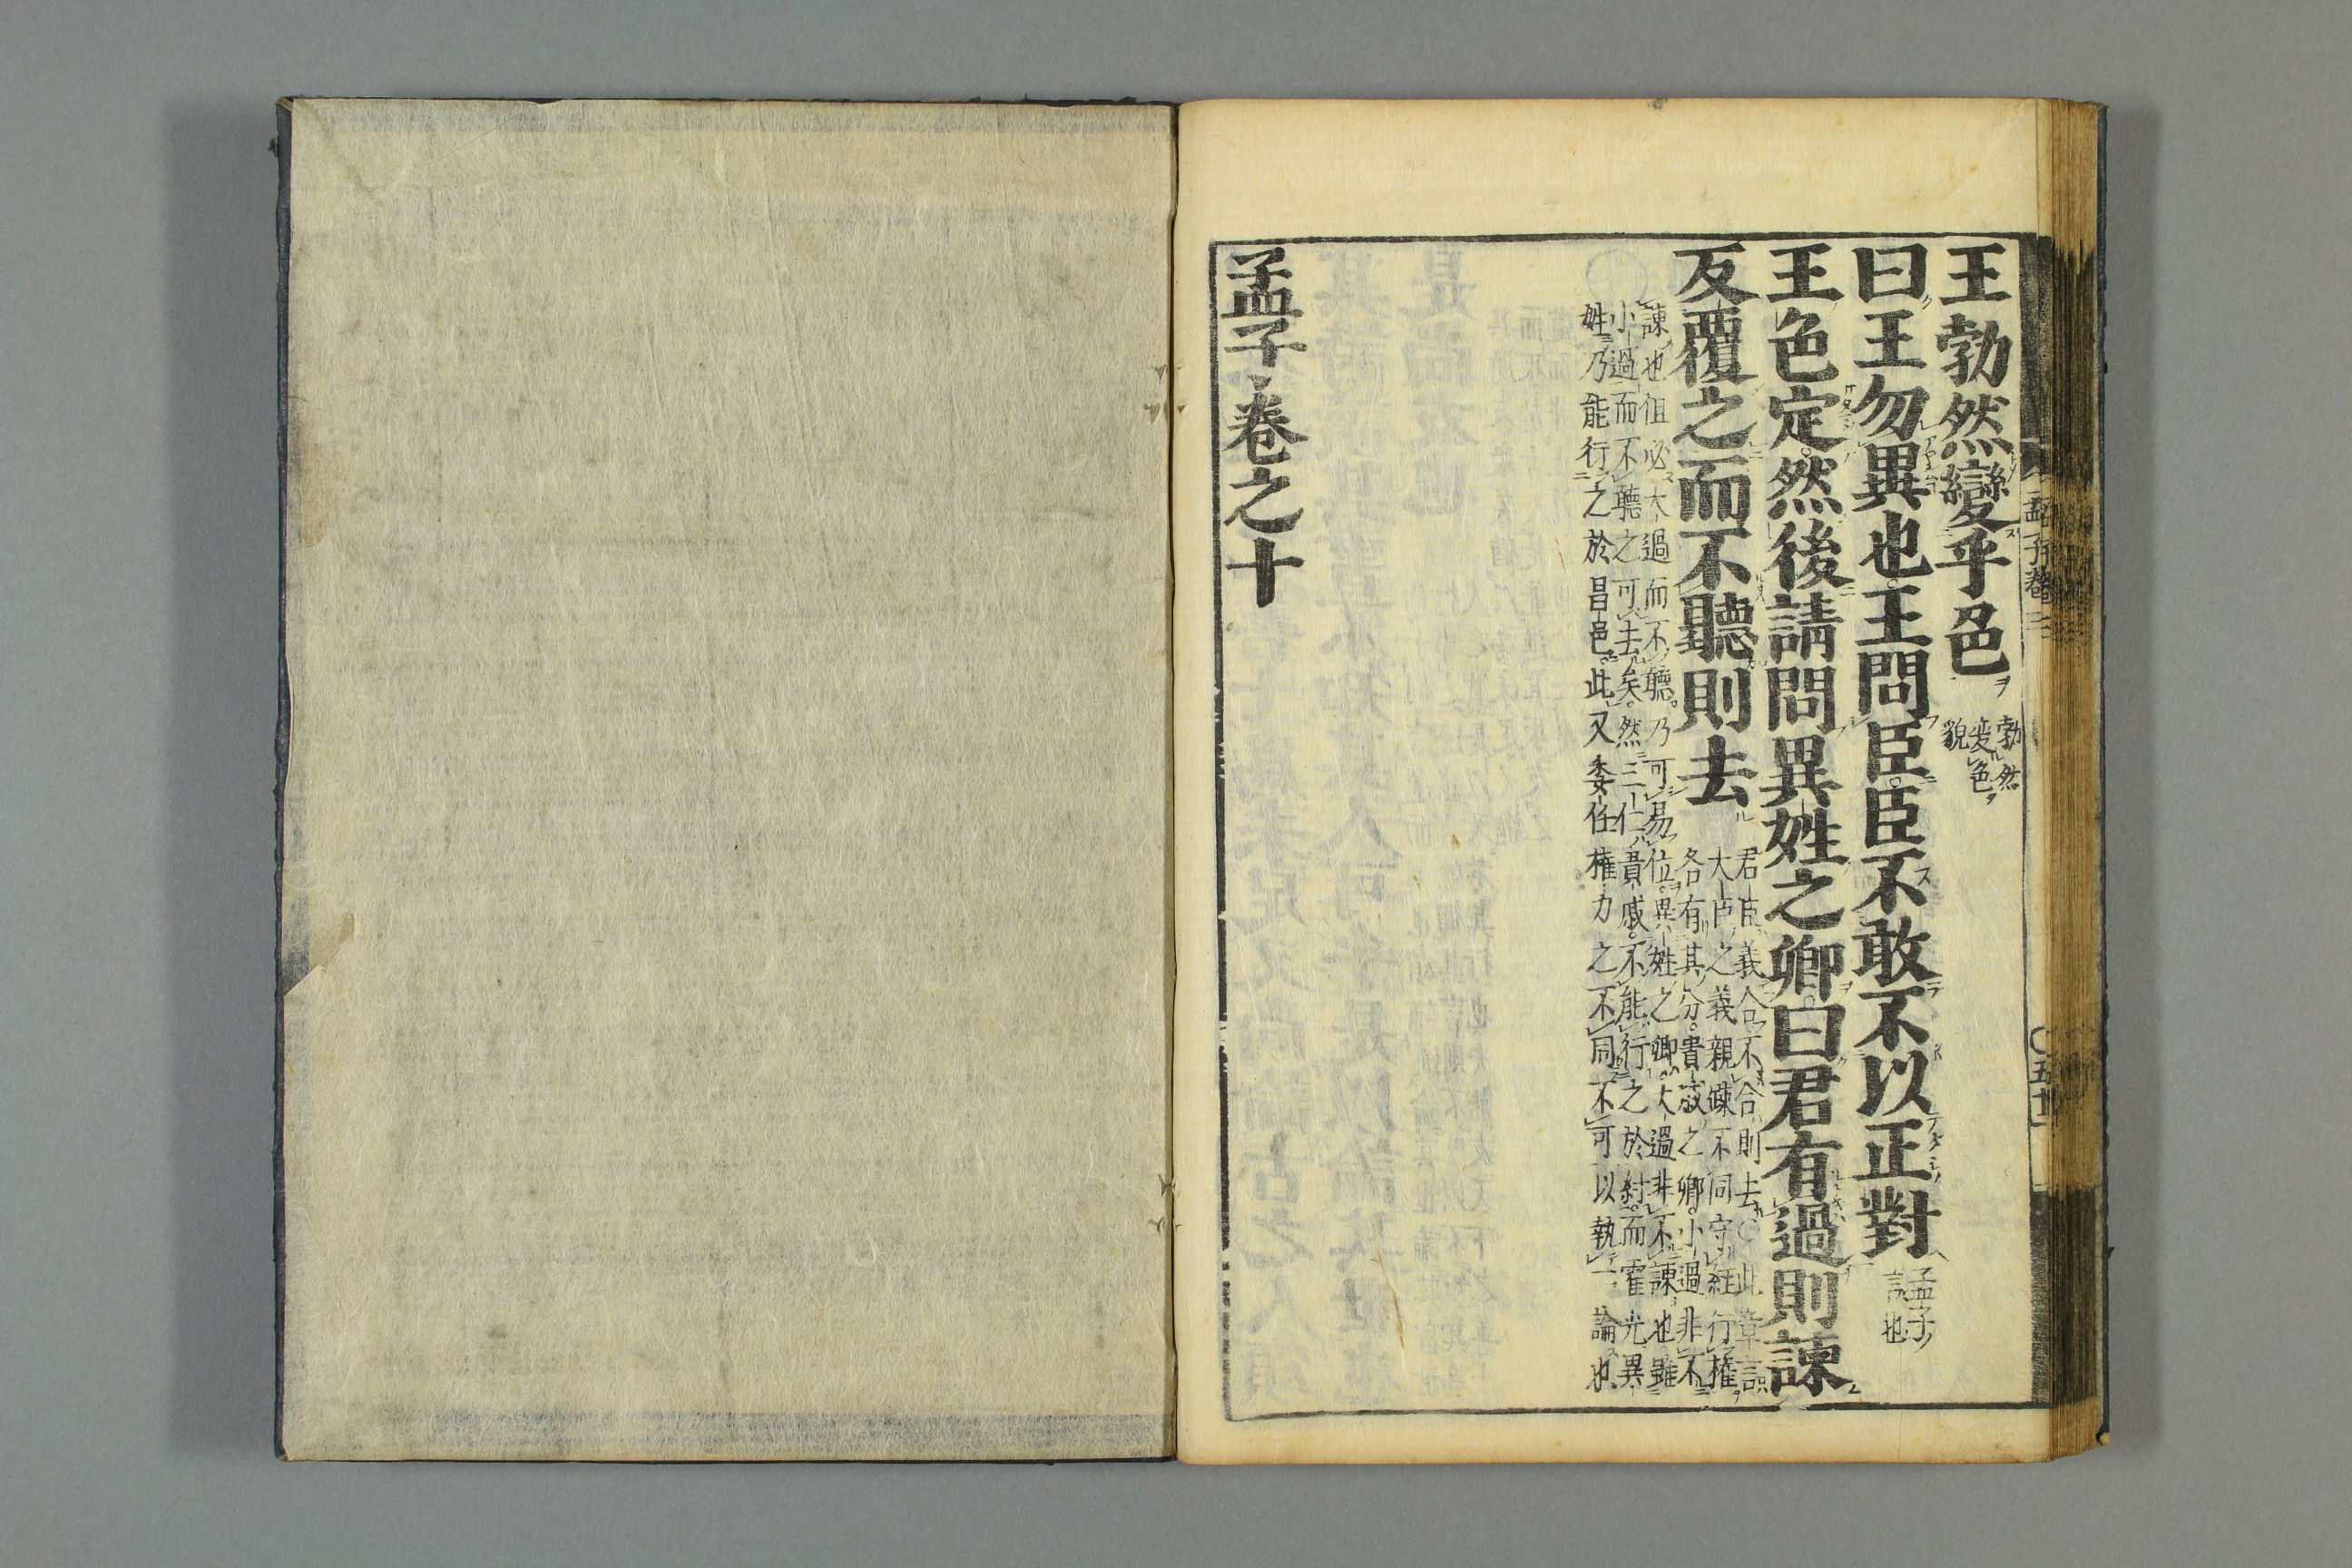 王勃然變乎色
勃然
変色
貌
曰王勿異也王問臣臣不敢不以正對
孟子
言也
王色定然後請問異姓之卿曰君有過則諫
反覆之而不聽則去
君臣義合不合則去○此章言
大臣之義親疎不同守經行權
各有其分。貴戚之卿。小過非不
諫也但必大過而不聽。乃可易位。異姓之卿。大過非不諫也雖
小過而不聽之可去矣。然三仁貴戚。不能行之於紂。而霍光異
姓乃能行之於昌邑。此又委任權力之不同不可以執一論也
孟子卷之十
孟子卷